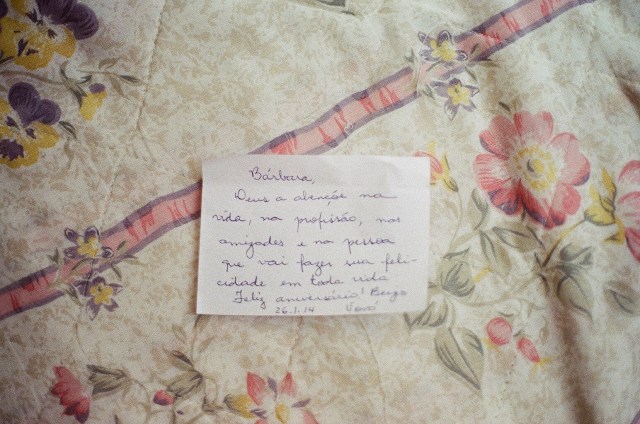 Bárbara,
Deus a abençõe na
vida, na profissão, nas
amizades e na pessoa
que vai fazer sua feli-
cidade em toda vida
Feliz aniversário! Beijo
26.1.14 Vovó